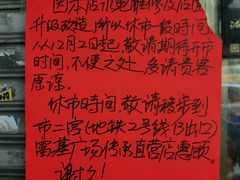 因本店机电维修及店面
升级改造,所以休市一段时间
从12月2日起,敬请期待开市
时间,不便之处多请贵客
原谅.
休市时间敬请移步到
市二宫(地铁2号线B出口)
富基广场传承直营店惠顾.
谢谢!